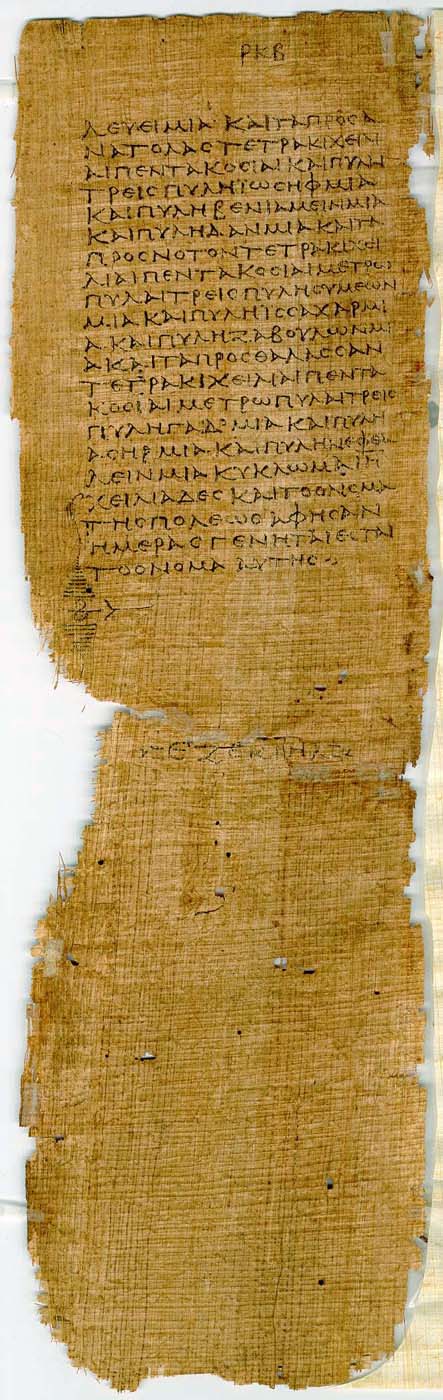 ΡΚΒ
ΛΕΥΕΙΜΙΑΚΑΙΤΑΠΡΟϹΑ
ΝΑΤΟΛΑϹΤΕΤΡΑΚΙΧΕΙΛΙ
ΑΙΠΕΝΤΑΚΟϹΙΑΙΚΑΙΠΥΛΗ
ΤΡΕΙϹΠΥΛΗΪΩϹΗΦΜΙΑ
ΚΑΙΠΥΛΗΒΕΝΙΑΜΕΙΝΜΙΑ
ΚΑΙΠΥΛΗΔΑΝΜΙΑΚΑΙΤΑ
ΠΡΟϹΝΟΤΟΝΤΕΤΡΑΚΙϹΧΕΙ
ΛΙΑΙΠΕΝΤΑΚΟϹΙΑΙΜΕΤΡΩ
ΠΥΛΑΙΤΡΕΙϹΠΥΛΗϹΥΜΕΩΝ
ΜΙΑΚΑΙΠΥΛΗΪϹϹΑΧΑΡΜΙ
ΑΚΑΙΠΥΛΗΖΑΒΟΥΛΩΝΜΙ
ΑΚΑΙΤΑΠΡΟϹΘΑΛΑϹϹΑΝ
ΤΕΤΡΑΚΙΧΕΙΛΙΑΙΠΕΝΤΑ
ΚΟϹΙΑΙΜΕΤΡΩΠΥΛΑΙΤΡΕΙϹ
ΠΥΛΗΓΑΔΜΙΑΚΑΙΠΥΛΗ
ΑϹΗΡΜΙΑΚΑΙΠΥΛΗΝΕΦΘΑ
ΛΕΙΝΜΙΑΚΥΚΛΩΜΑΙΗ
ΧΕΙΛΙΑΔΕϹΚΑΙΤΟΟΝΟΜΑ
ΤΗϹΠΟΛΕΩϹΑΦΗϹΑΝ
ΗΜΕΡΑϹΓΕΝΗΤΑΙΕϹΤΑΙ
ΤΟΟΝΟΜΑΑΥΤΗϹ
ΙΕΖΕΚΙΗΛ